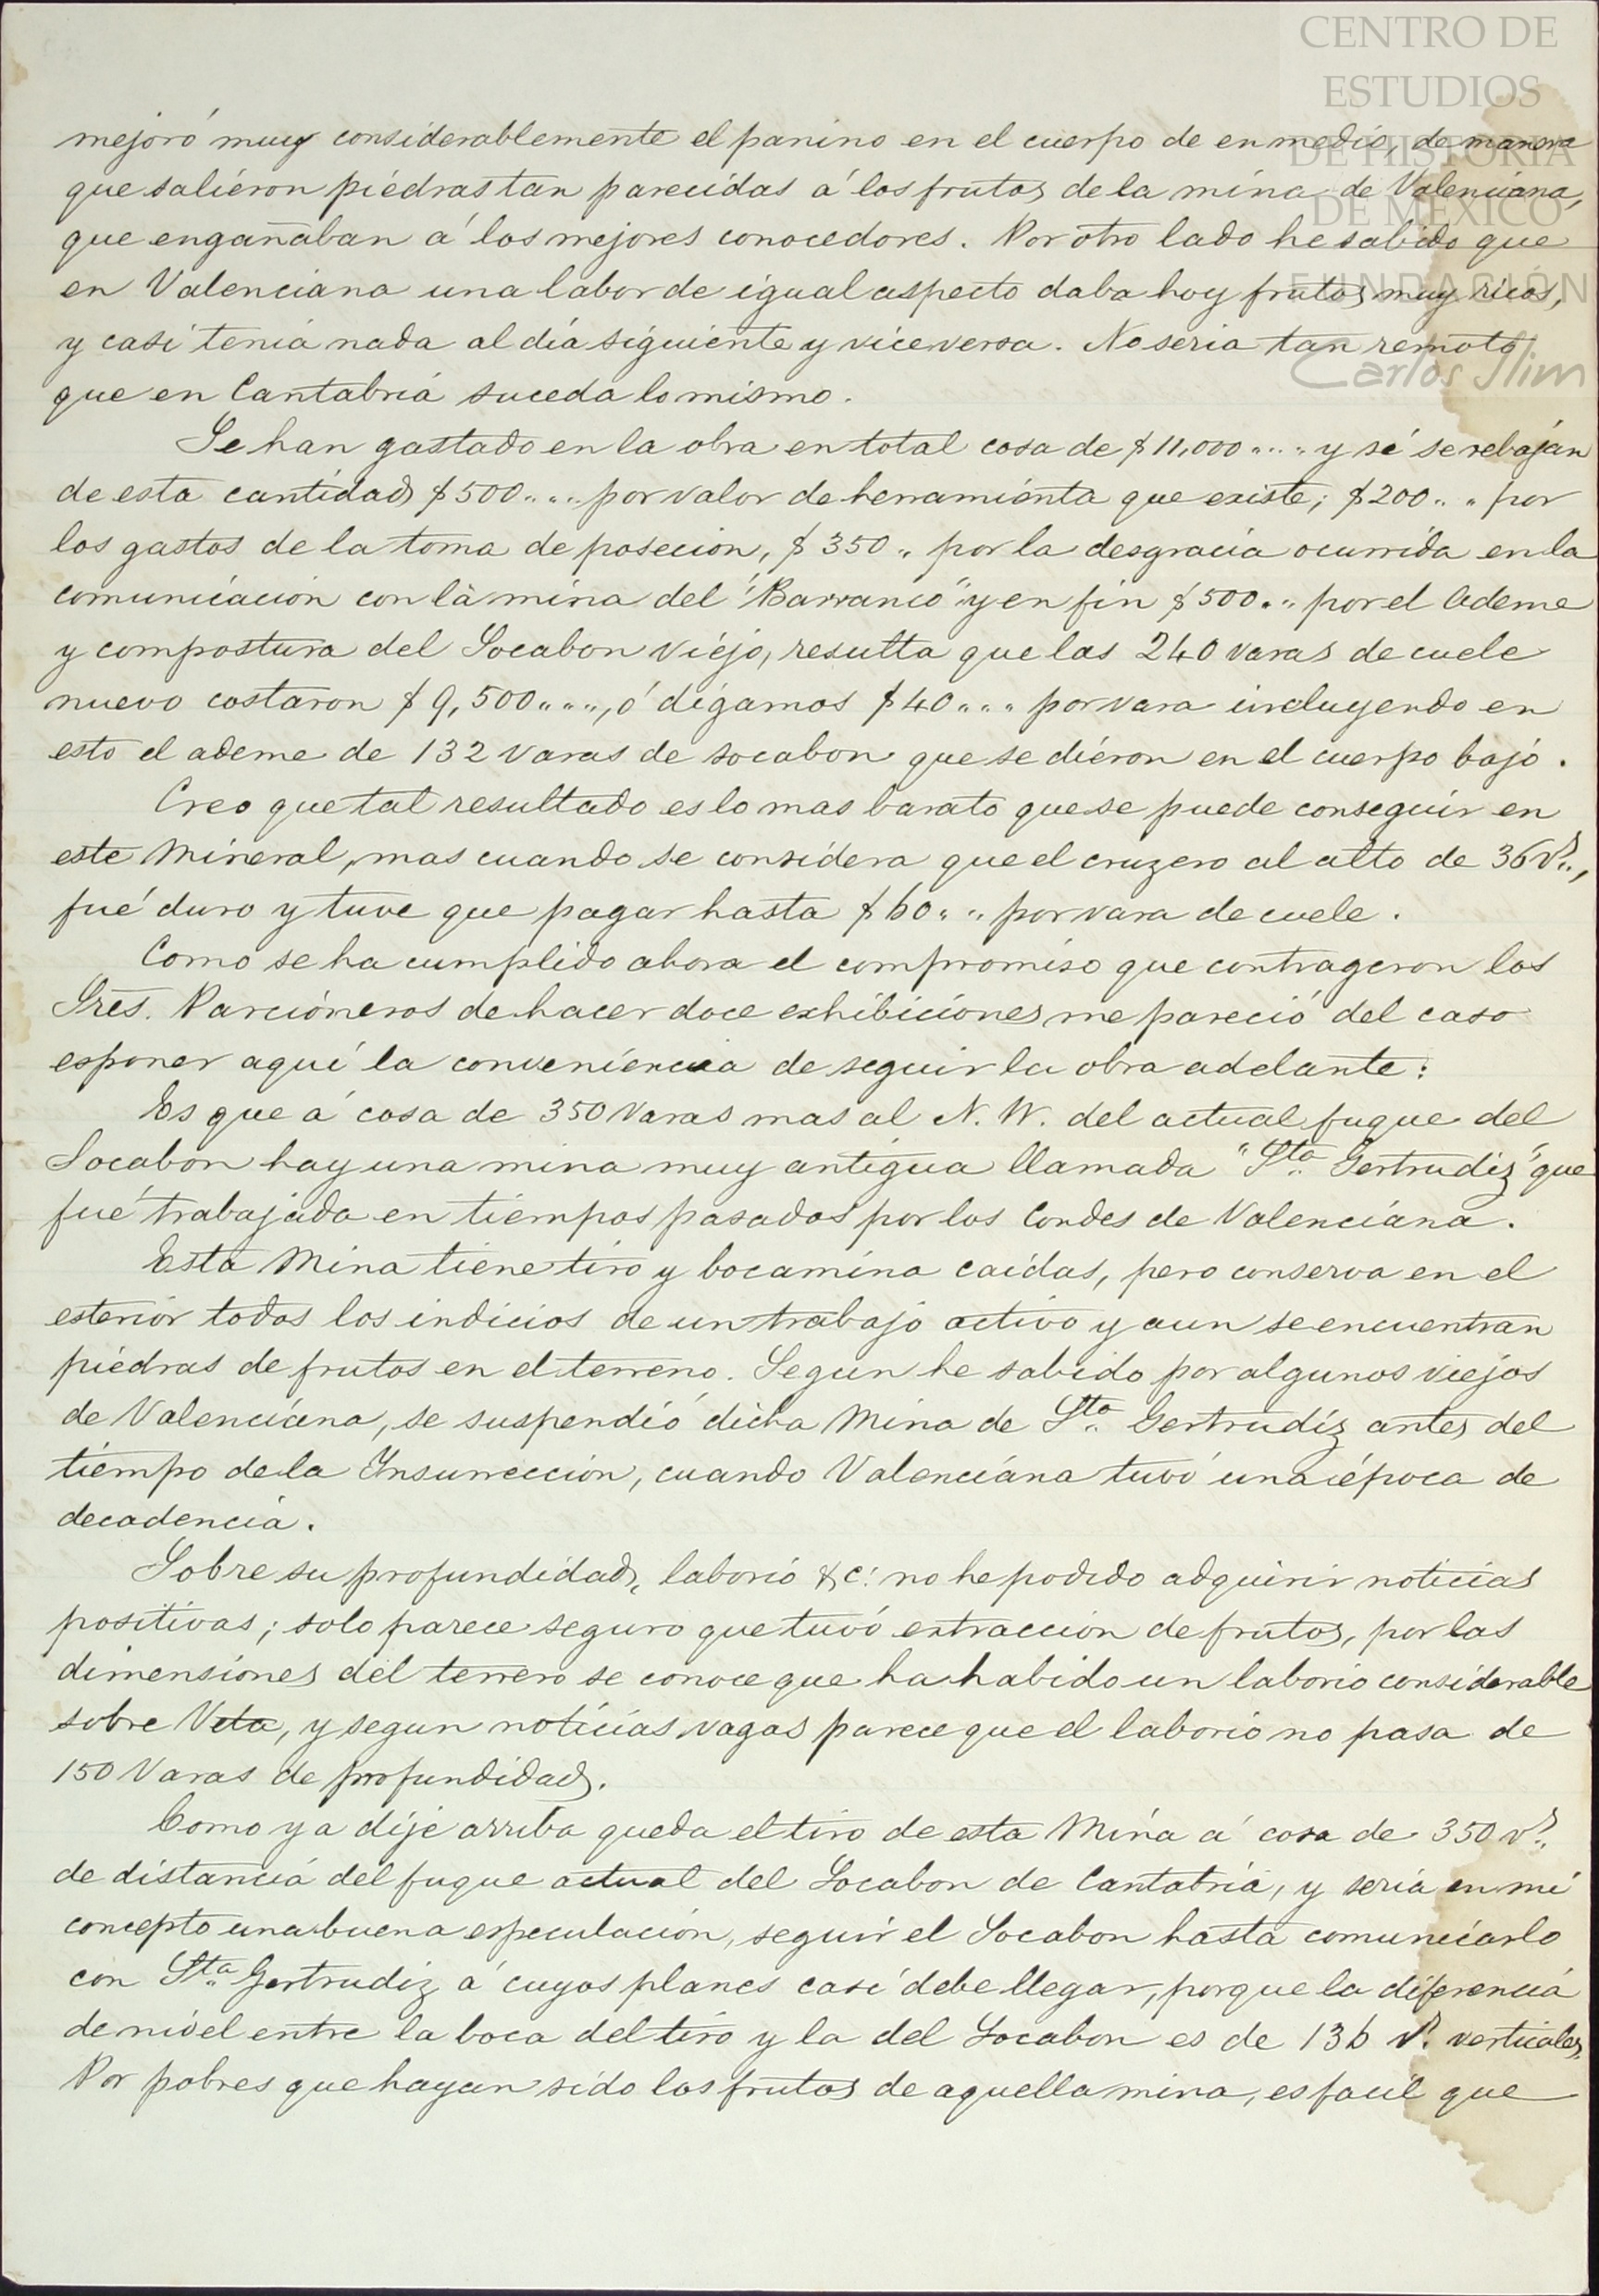 CENTRO DE
ESTUDIOS
DE HISTORIA
DE MÉXICO
FUNDACIÓN
Carlos Slim
mejoró muy considerablemente el panino en el cuerpo de en medio, de manera
que salieron piedras tan parecidas á los frutos de la mina de Valenciana,
que engañaban á los mejores conocedores. Por otro lado he sabido que
en Valenciana una labor de igual aspecto daba hoy frutos muy ricos,
y casi tenia nada al dia siguiente y viceversa. No seria tan remoto
que en Cantabria suceda lo mismo.
Se han gastado en la obra en total cosa de $11,000 .... y si se rebajan
de esta cantidad $500.... por valor de herramienta que existe; $200... por
los gastos de la toma de posecion, $350.. por la desgracia ocurrida en la
comunicacion con la mina del "Barranco" y en fin $500... por el Ademe
y compostura del Socabon viejo, resulta que las 240 varas de cuele
nuevo costaron $9,500...., ó digamos $40.... por vara incluyendo en
esto el ademe de 132 Varas de socabon que se dieron en el cuerpo bajo.
Creo que tal resultado es lo mas barato que se puede conseguir en
este Mineral, mas cuando se considera que el cruzero al alto de 36 Vs.,
fué duro y tuve que pagar hasta $60... por vara de cuele.
Como se ha cumplido ahora el compromiso que contrageron los
Sres. Parcioneros de hacer doce exhibiciones me pareció del caso
esponer aqui la conveniencia de seguir la obra adelante:
Es que á cosa de 350 Varas mas al N. W. del actual fuque del
Socabon hay una mina muy antigua llamada "Sta Gertrudiz" que
fué trabajada en tiempos pasados por los Condes de Valenciana.
Esta Mina tiene tiro y bocamina caidas, pero conserva en el
esterior todos los indicios de un trabajo activo y aun se encuentran
piedras de frutos en el terreno. Segun he sabido por algunos viejos
de Valenciana, se suspendió dicha Mina de Sta Gertrudiz antes del
tiempo de la Insurreccion, cuando Valenciana tuvó una época de
decadencia.
Sobre su profundidad, laborio &c: no he podido adquirir noticias
positivas; solo parece seguro que tuvó extraccion de frutos, por las
dimensiones del terrero se conoce que ha habido un laborio considerable
sobre Veta, y segun noticias vagas parece que el laborio no pasa de
150 Varas de profundidad.
Como ya dije arriba queda el tiro de esta Mina á cosa de 350 vs.
de distancia del fuque actual del Socabon de Cantabria, y seria en mi
concepto una buena especulacion, seguir el Socabon hasta comunicarlo
con Sta Gertrudiz á cuyos planes casi debe llegar, porque la diferencia
de nivel entre la boca del tiro y la del Socabon es de 136 vs. verticales.
Por pobres que hayan sido los frutos de aquella mina, es facil que